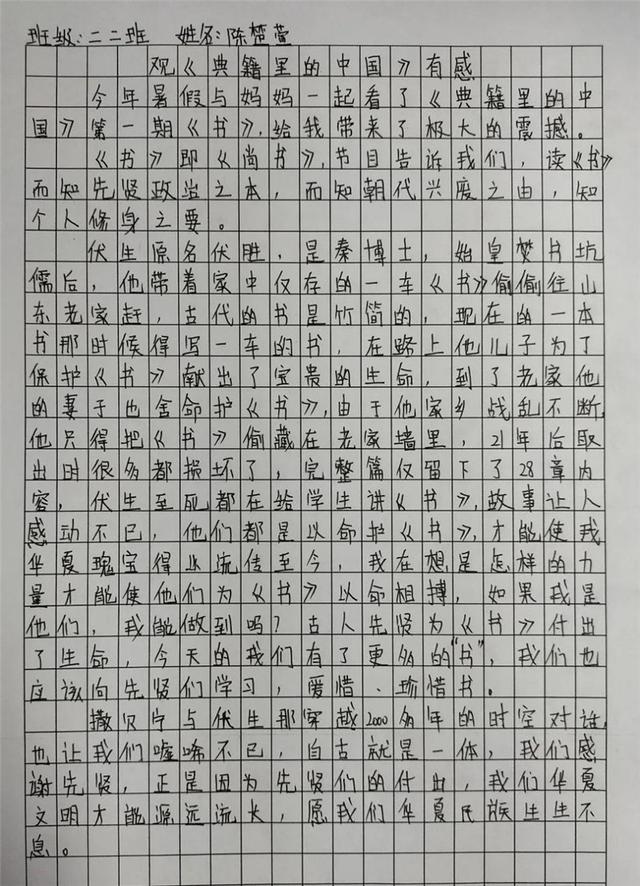 班级:二二班 姓名:陈楚萱
观《典籍里的中国》有感
今年暑假与妈妈一起看了《典籍里的中
国》第一期《书》,给我带来了极大的震撼。
《书》即《尚书》,节目告诉我们,读《书》
而知先贤政治之本,而知朝代兴废之由,知
个人修身之要。
伏生原名伏胜,是秦博士,始皇焚书坑
儒后,他带着家中仅存的一车《书》偷偷往山
东老家赶,古代的书是竹简的,现在的一本
书那时候得写一车的书,在路上他儿子为了
保护《书》献出了宝贵的生命,到了老家他
的妻子也舍命护《书》,由于他家乡战乱不断,
他只得把《书》偷藏在老家墙里,21年后取
出时很多都损坏了,完整篇仅留下了28章内
容,伏生至死都在给学生讲《书》,故事让人
感动不已,他们都是以命护《书》,才能使我
华夏瑰宝得以流传至今,我在想是怎样的力
量才能使他们为《书》以命相搏,如果我是
他们,我能做到吗?古人先贤为《书》付出
了生命,今天的我们有了更多的“书”,我们也
应该向先贤们学习,爱惜、珍惜书。
撒贝宁与伏生那穿越2000多年的时空对话,
也让我们唏嘘不已,自古就是一体,我们感
谢先贤,正是因为先贤们的付出,我们华夏
文明才能源远流长,愿我们华夏民族生生不
息。